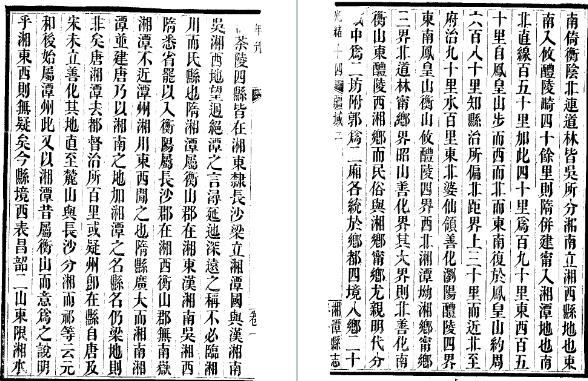 南倚衡陰北連道林皆吳所分湘南立湘西縣地也東
南入攸醴陵畸四十餘里則隋併建甯入湘潭地也南
北直線百五十里加此四十里爲百九十里東西百五
十里自鳳皇山步而西而北而東南復於鳳皇山約周
六百八十里知縣治所偏北距界上三十里而近北至
府治九十里水百里東北婆仙嶺善化瀏陽醴陵四界
東南鳳皇山衡山攸醴陵四界西北湘潭坳湘鄉甯鄉
三界北道林甯鄉界昭山善化界其大界則北善化南
衡山東醴陵西湘鄉而民俗與湘鄉甯鄉尤親明代分
中爲二坊附郭爲二廂各統於鄉都四境入鄉二十
光緒十四 疆域二 湘潭縣志
年刊 卷二
茶陵四縣皆在湘東隸長沙梁立湘潭國與漢湘南
吳湘西地望迥絕潭之言潯延迤深遠之稱不必臨湘
川而氏縣也隋湘潭屬衡山郡在湘東漢湘南吳湘西
隋悉省罷以入衡陽屬長沙郡在湘西衡山郡無南嶽
湘潭不近潭州湘川東西閡之也隋縣廣大而湘南湘
潭並建唐乃以湘南之地加湘潭之名縣名仍梁地則
非矣唐湘潭去都督治所百里或疑州卽在縣自唐及
宋未立善化其地直至麓山與長沙分湘而祁等云元
和後始屬潭州此又以湘潭昔屬衡山而意爲之說明
乎湘東西則無疑矣今縣境西表昌韶二山東限湘水